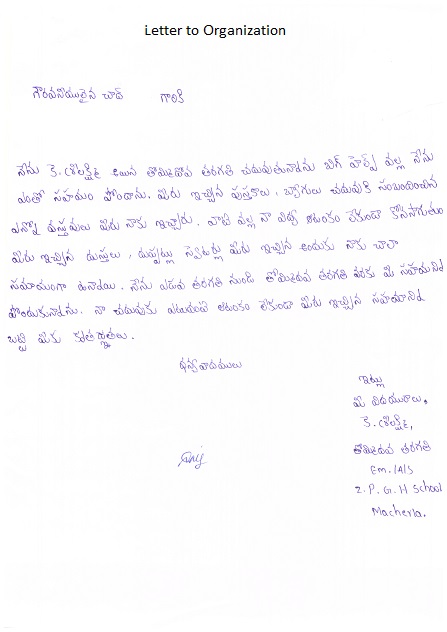 Letter to Organization
గౌరవనీయులైన చాద్ గారికి
నేను కె. శ్రీలక్ష్మి అయిన తొమ్మిదొవ తరగతి చదువుతున్నాను బిగ్ హెల్ప్ వల్ల నేను
ఎంతో సహాయం పొందాను. మీరు ఇచ్చిన పుస్తకాలు, బ్యాగులు చదువుకి సంబందించిన
ఎన్నో వస్తువులు మీరు నాకు ఇచ్చారు. వాటి వల్ల నా విద్య ఆటంకం లేకుండా కొనసాగుతుంది
మీరు ఇచ్చిన దుస్తులు, దుప్పట్లు స్వెటర్లు మీరు ఇచ్చిన అందుకు నాకు చాలా
సహాయంగా ఉన్నాయి. నేను ఎడవ తరగతి నుండి తొమ్మిదవ తరగతి వరకు మీ సహాయాన్ని
పొందుకున్నాను. నా చదువుకు ఎటువంటి ఆటంకం లేకుండా మీరు ఇచ్చిన సహాయాన్ని
బట్టి మీకు కృతజ్ఞతలు.
ధన్యవాదములు
ఇట్లు
మీ విదేయురాలు,
కె. శ్రీలక్ష్మి,
తొమ్మిదవ తరగతి
Em./A/S
Z. P. G. H School
Macherla.